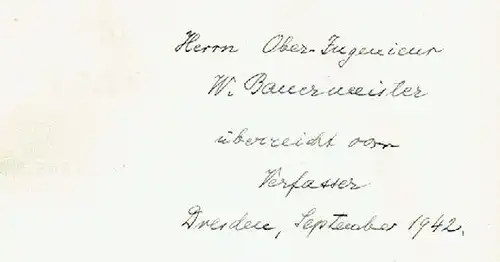 Herrn Ober-Ingenieur
W. Bauermeister
überreicht vom
Verfasser
Dresden, September 1942.